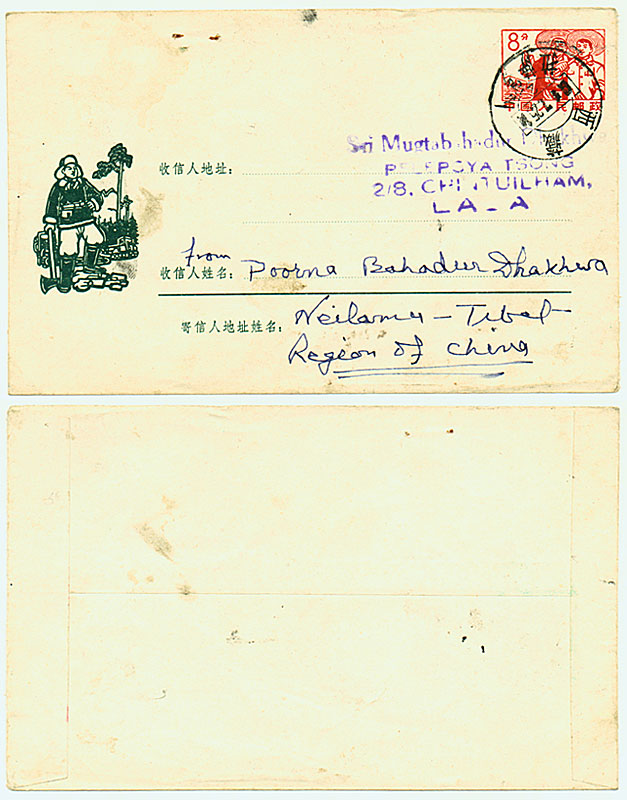 8分
中国人民邮政
西藏
Sri Mugtab
TSUNG
2/8.
收信人地址:
from
收信人姓名: Poorna Bahadur Dhakhwa
寄信人地址姓名: Neilamu - Tibet
Region of China